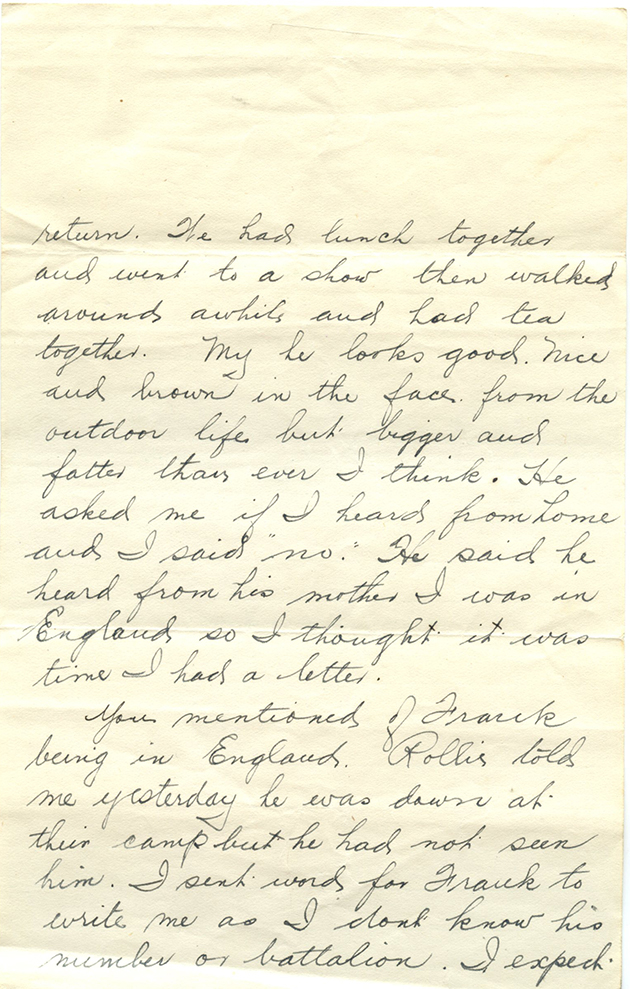 return. We had lunch together
and went to a show then walked
around awhile and had tea
together. My he looks good. Nice
and brown in the face from the
outdoor life but bigger and
fatter than ever I think. He
asked me if I heard from home
and I said "no." He said he
heard from his mother I was in
England so I thought it was
time I had a letter.
You mentioned of Frank
being in England. Rollie told
me yesterday he was down at
their camp but he had not seen
him. I sent word for Frank to
write me as I dont know his
number or battalion. I expect